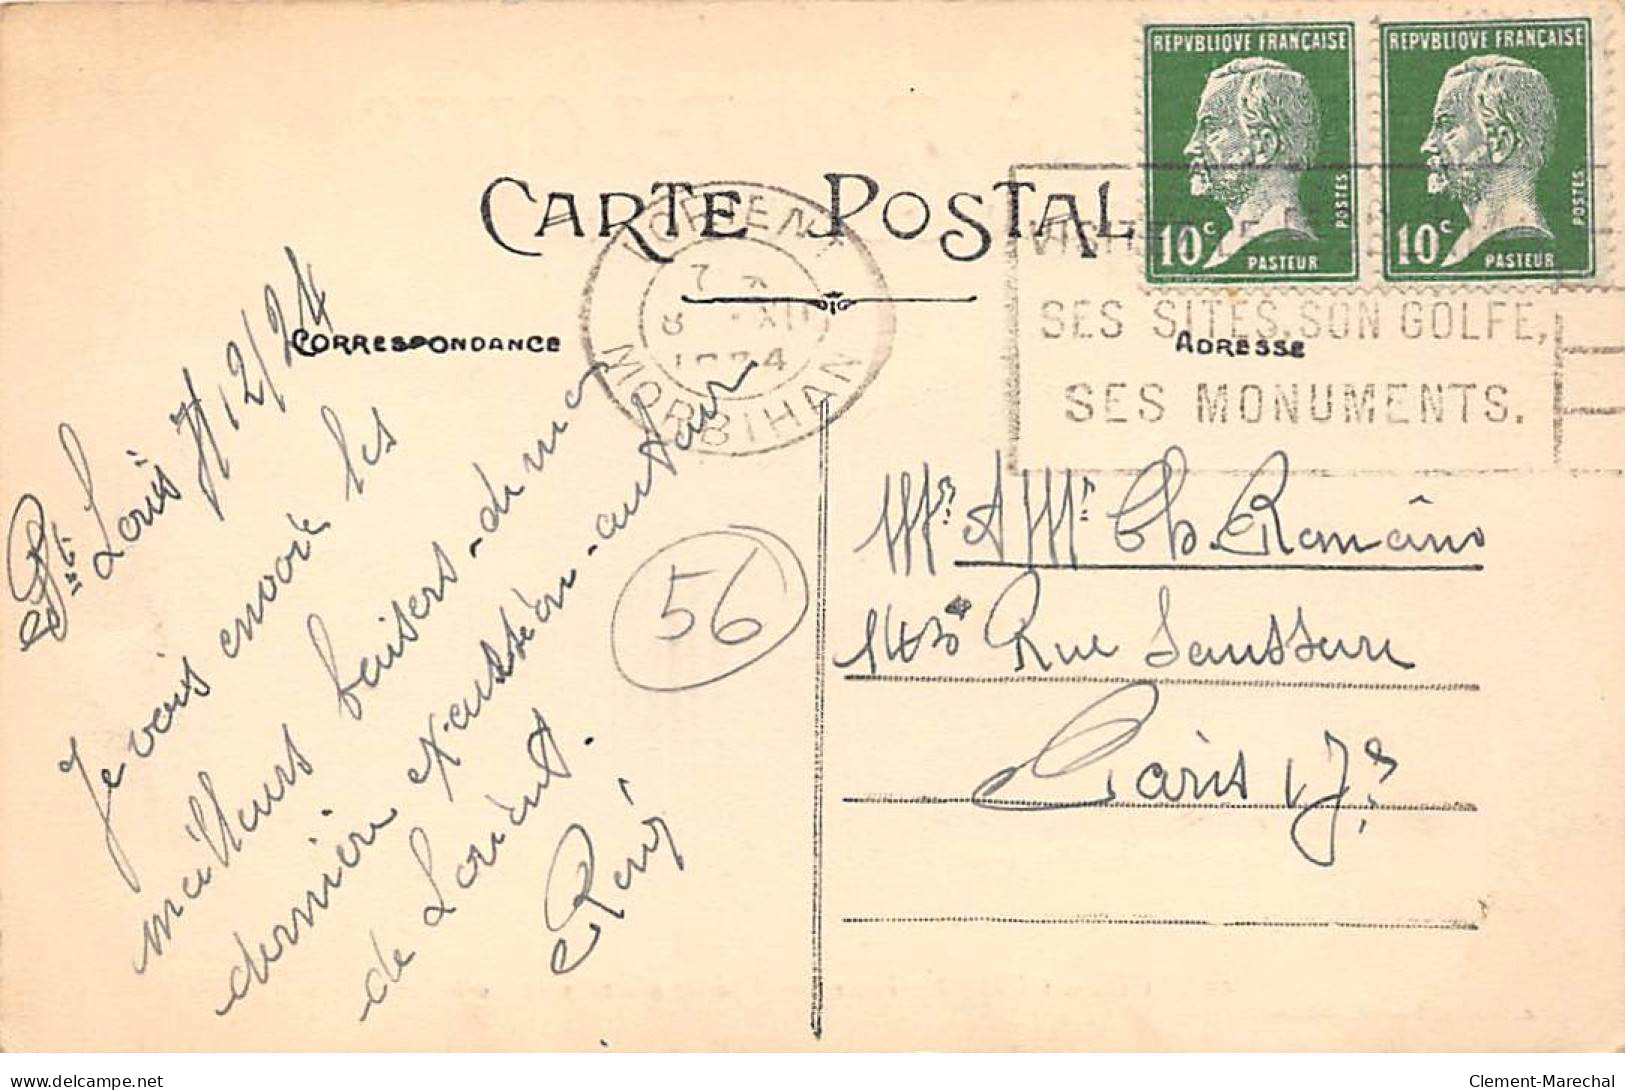 CARTE POSTALE
CORRESPONDANCE
ADRESSE
REPVBLIQVE FRANÇAISE
10c
POSTES
PASTEUR
REPVBLIQVE FRANÇAISE
10c
POSTES
PASTEUR
LORIENT
7
8 XII
1924
MORBIHAN
VISITEZ
SES SITES, SON GOLFE,
SES MONUMENTS.
Pt Louis 7/12/24
Je vais envoie les
meilleurs baisers de ma
dernière
de Lorient.
René
56
Mr & Mme Ch. Romain
143 Rue Saussure
Paris 17e
delcampe.net
Clement-Marechal